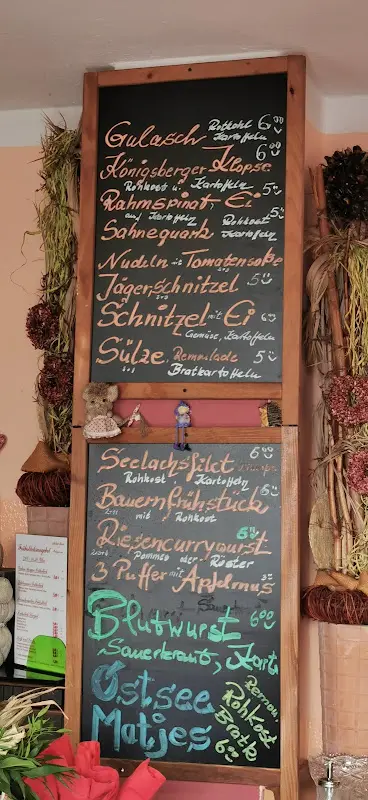 Gulasch Rotkohl Kartoffeln 6,00
Königsberger Klopse 6,00
Rohkost u. Kartoffeln
Rahmspinat Ei 5,
auf Kartoffeln
Sahnequark Rohkost Kartoffeln 5,
Nudeln mit Tomatensoße
Jägerschnitzel 5,
Schnitzel mit Ei 6,
Gemüse, Kartoffeln
Sülze, Remoulade 5,
Bratkartoffeln
Seelachsfilet 6,00
Rohkost, Kartoffeln
Bauernfrühstück
mit Rohkost
Riesencurrywurst 6,
Pommes oder Röster
3 Puffer mit Apfelmus
Blutwurst 6,00
Sauerkraut, Kart.
Ostsee
Matjes
Remou.
Rohkost
Bratk.
6,